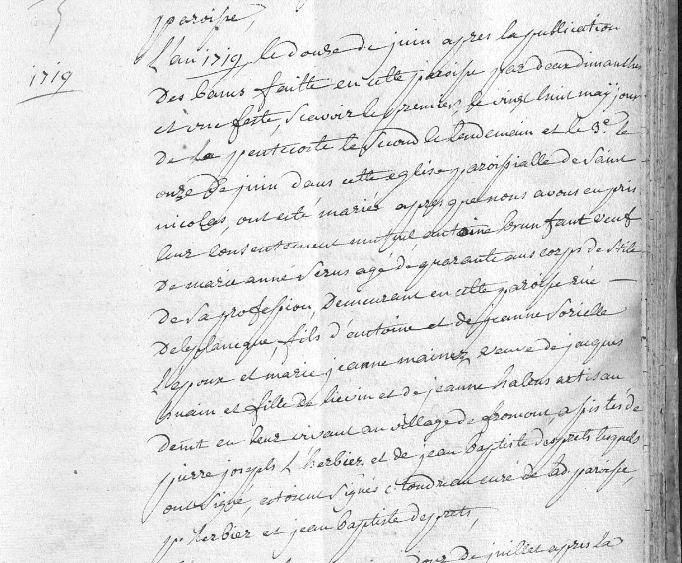 paroisse,
1719
L'an 1719 le douze de juin apres la publication
Des bans faitte en cette paroisse par deux dimanches
et une feste, scavoir le premier, le vingt huit may jour
de la pentecoste le second le lendemain et le 3e le
onze de juin dans cette eglise paroissialle de Saint
nicolas, ont eté mariez apres que nous avons eu pris
leur consentement mutuel, antoine brunfaut veuf
de marie anne agé de quarante ans corps de stile
de sa profession, demeurant en cette paroisse rüe
Delplancque, fils d'antoine et de jeanne Sorielle
L'epoux et marie jeanne mainez veuve de jacques
et fille de lievin et de jeanne halens artisan
en leur vivant au village de fromont, assistés de
pierre joseph L'herbier et de jean baptiste desprets lesquels
ont signé, estoient signés curé de lad. paroisse
p herbier et jean baptiste desprets,
de juillet apres la